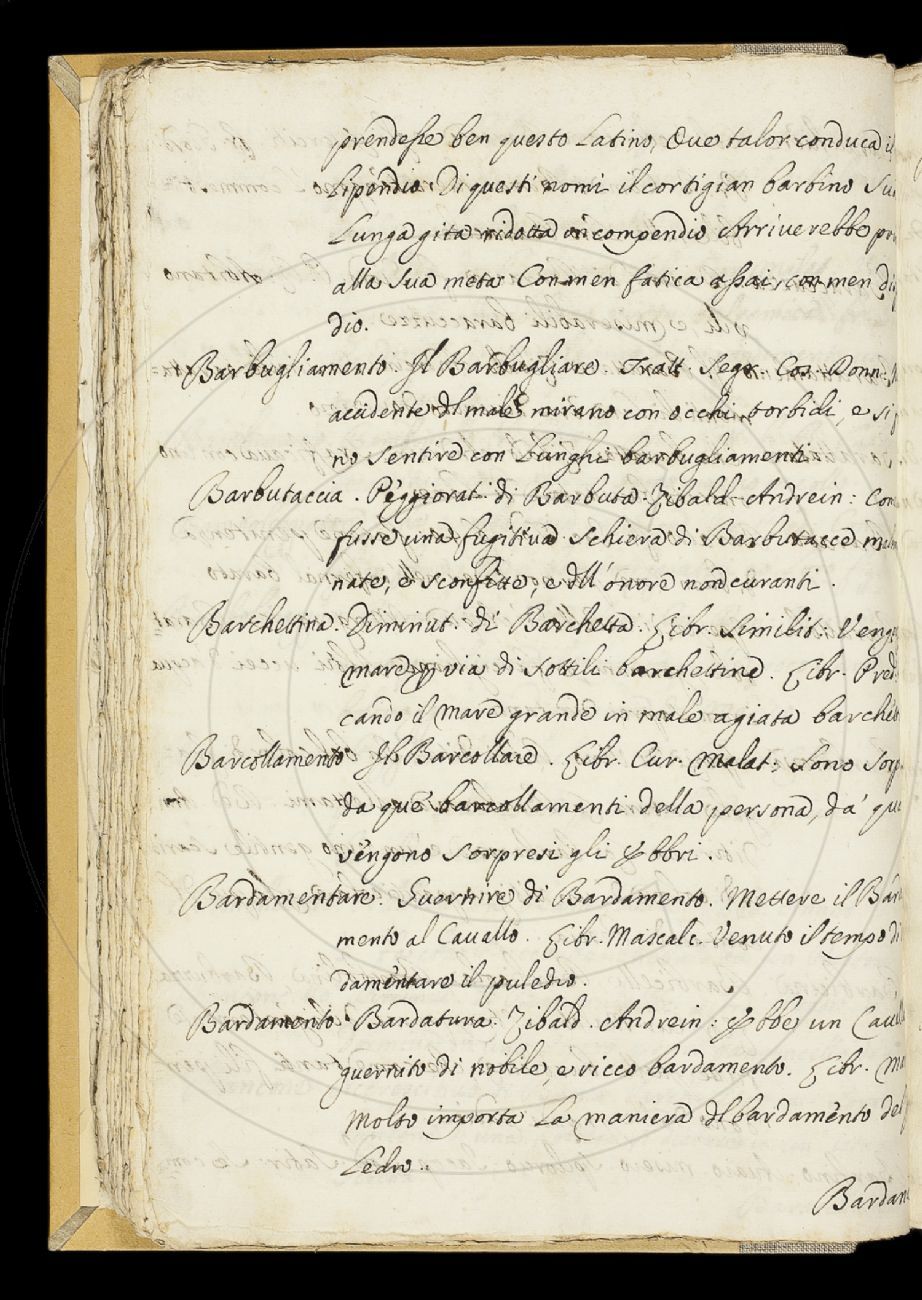 prendesse ben questo Latino, Ove talor conduca il
stipendio. Di questi nomi il cortigian barbino Su
Lunga gita ridotta in compendio Arriverebbe
alla Sua meta Con men fatica assai, con men
dio.
Barbugliamento. Il Barbugliare. Tratt. Segr. Cos. Donn.
accidente dl male mirano con occhi torbidi, e si
no sentire con lunghi barbugliamenti
Barbutaccia. Peggiorat. di Barbuta. Zibald. Andrein: Com
fusse una fugitiva schiera di Barbutacce
nate, e sconfitte, e dll'onore non curanti.
Barchettina. Diminut. di Barchetta. Libr. Similit: Veng
mare p via di sottili barchettine. Libr. Pred
cando il mare grande in male agiata barchet
Barcollamento Il Barcollare. Libr. Cur. Malat: Sono sorp
da que' barcollamenti della persona, da' qu
vengono sorpresi gli ebbri.
Bardamentare. Guernire di Bardamento. Mettere il Bar
mento al Cavallo. Libr. Mascalc. Venuto il tempo di
damentare il puledro.
Bardamento Bardatura. Zibald. Andrein: Ebbe un Caval
guernito di nobile, e ricco bardamento. Libr. Ma
Molto importa La maniera dl bardamento del
Ledro.
Bardam